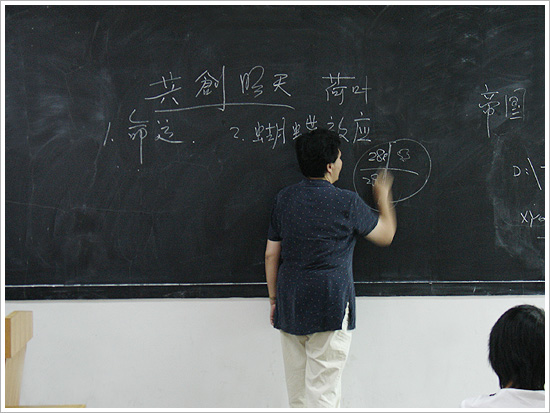 共創明天 荷叶
1. 命运. 2. 蝴蝶效应
帝国
D:\